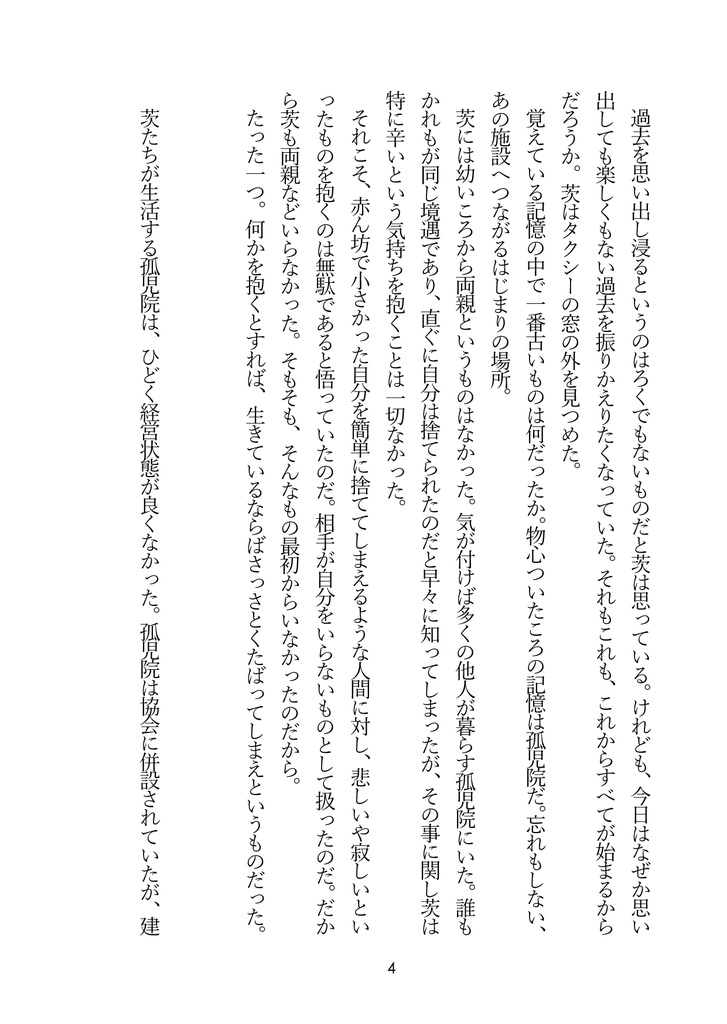 過去を思い出し浸るというのはろくでもないものだと茨は思っている。けれども、今日はなぜか思い
出しても楽しくもない過去を振りかえりたくなっていた。それもこれも、これからすべてが始まるから
だろうか。茨はタクシーの窓の外を見つめた。
覚えている記憶の中で一番古いものは何だったか。物心ついたころの記憶は孤児院だ。忘れもしない、
あの施設へつながるはじまりの場所。
茨には幼いころから両親というものはなかった。気が付けば多くの他人が暮らす孤児院にいた。誰も
かれもが同じ境遇であり、直ぐに自分は捨てられたのだと早々に知ってしまったが、その事に関し茨は
特に辛いという気持ちを抱くことは一切なかった。
それこそ、赤ん坊で小さかった自分を簡単に捨ててしまえるような人間に対し、悲しいや寂しいとい
ったものを抱くのは無駄であると悟っていたのだ。相手が自分をいらないものとして扱ったのだ。だか
ら茨も両親などいらなかった。そもそも、そんなもの最初からいなかったのだから。
たった一つ。何かを抱くとすれば、生きているならばさっさとくたばってしまえというものだった。
茨たちが生活する孤児院は、ひどく経営状態が良くなかった。孤児院は協会に併設されていたが、建
4